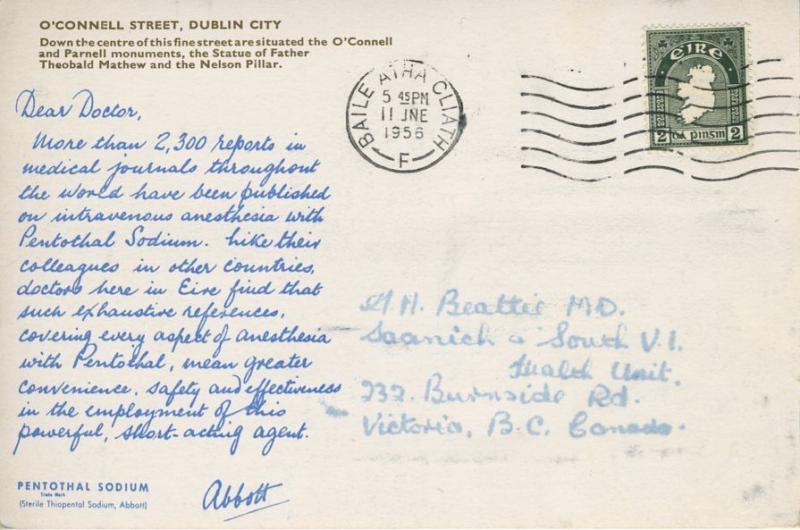 O'CONNELL STREET, DUBLIN CITY
Down the centre of this fine street are situated the O'Connell
and Parnell monuments, the Statue of Father
Theobald Mathew and the Nelson Pillar.
BAILE ÁTHA CLIATH
5 45PM
11 JNE
1956
F
éire
2 dá pinsin 2
Dear Doctor,
More than 2,300 reports in
medical journals throughout
the world have been published
on intravenous anesthesia with
Pentothal Sodium. Like their
colleagues in other countries,
doctors here in Eire find that
such exhaustive references,
covering every aspect of anesthesia
with Pentothal, mean greater
convenience, safety and effectiveness
in the employment of this
powerful, short-acting agent.
PENTOTHAL SODIUM
Trade Mark
(Sterile Thiopental Sodium, Abbott)
Abbott
Beattie M.D.
Saanich & South V.I.
Health Unit.
Burnside Rd.
Victoria, B.C. Canada.